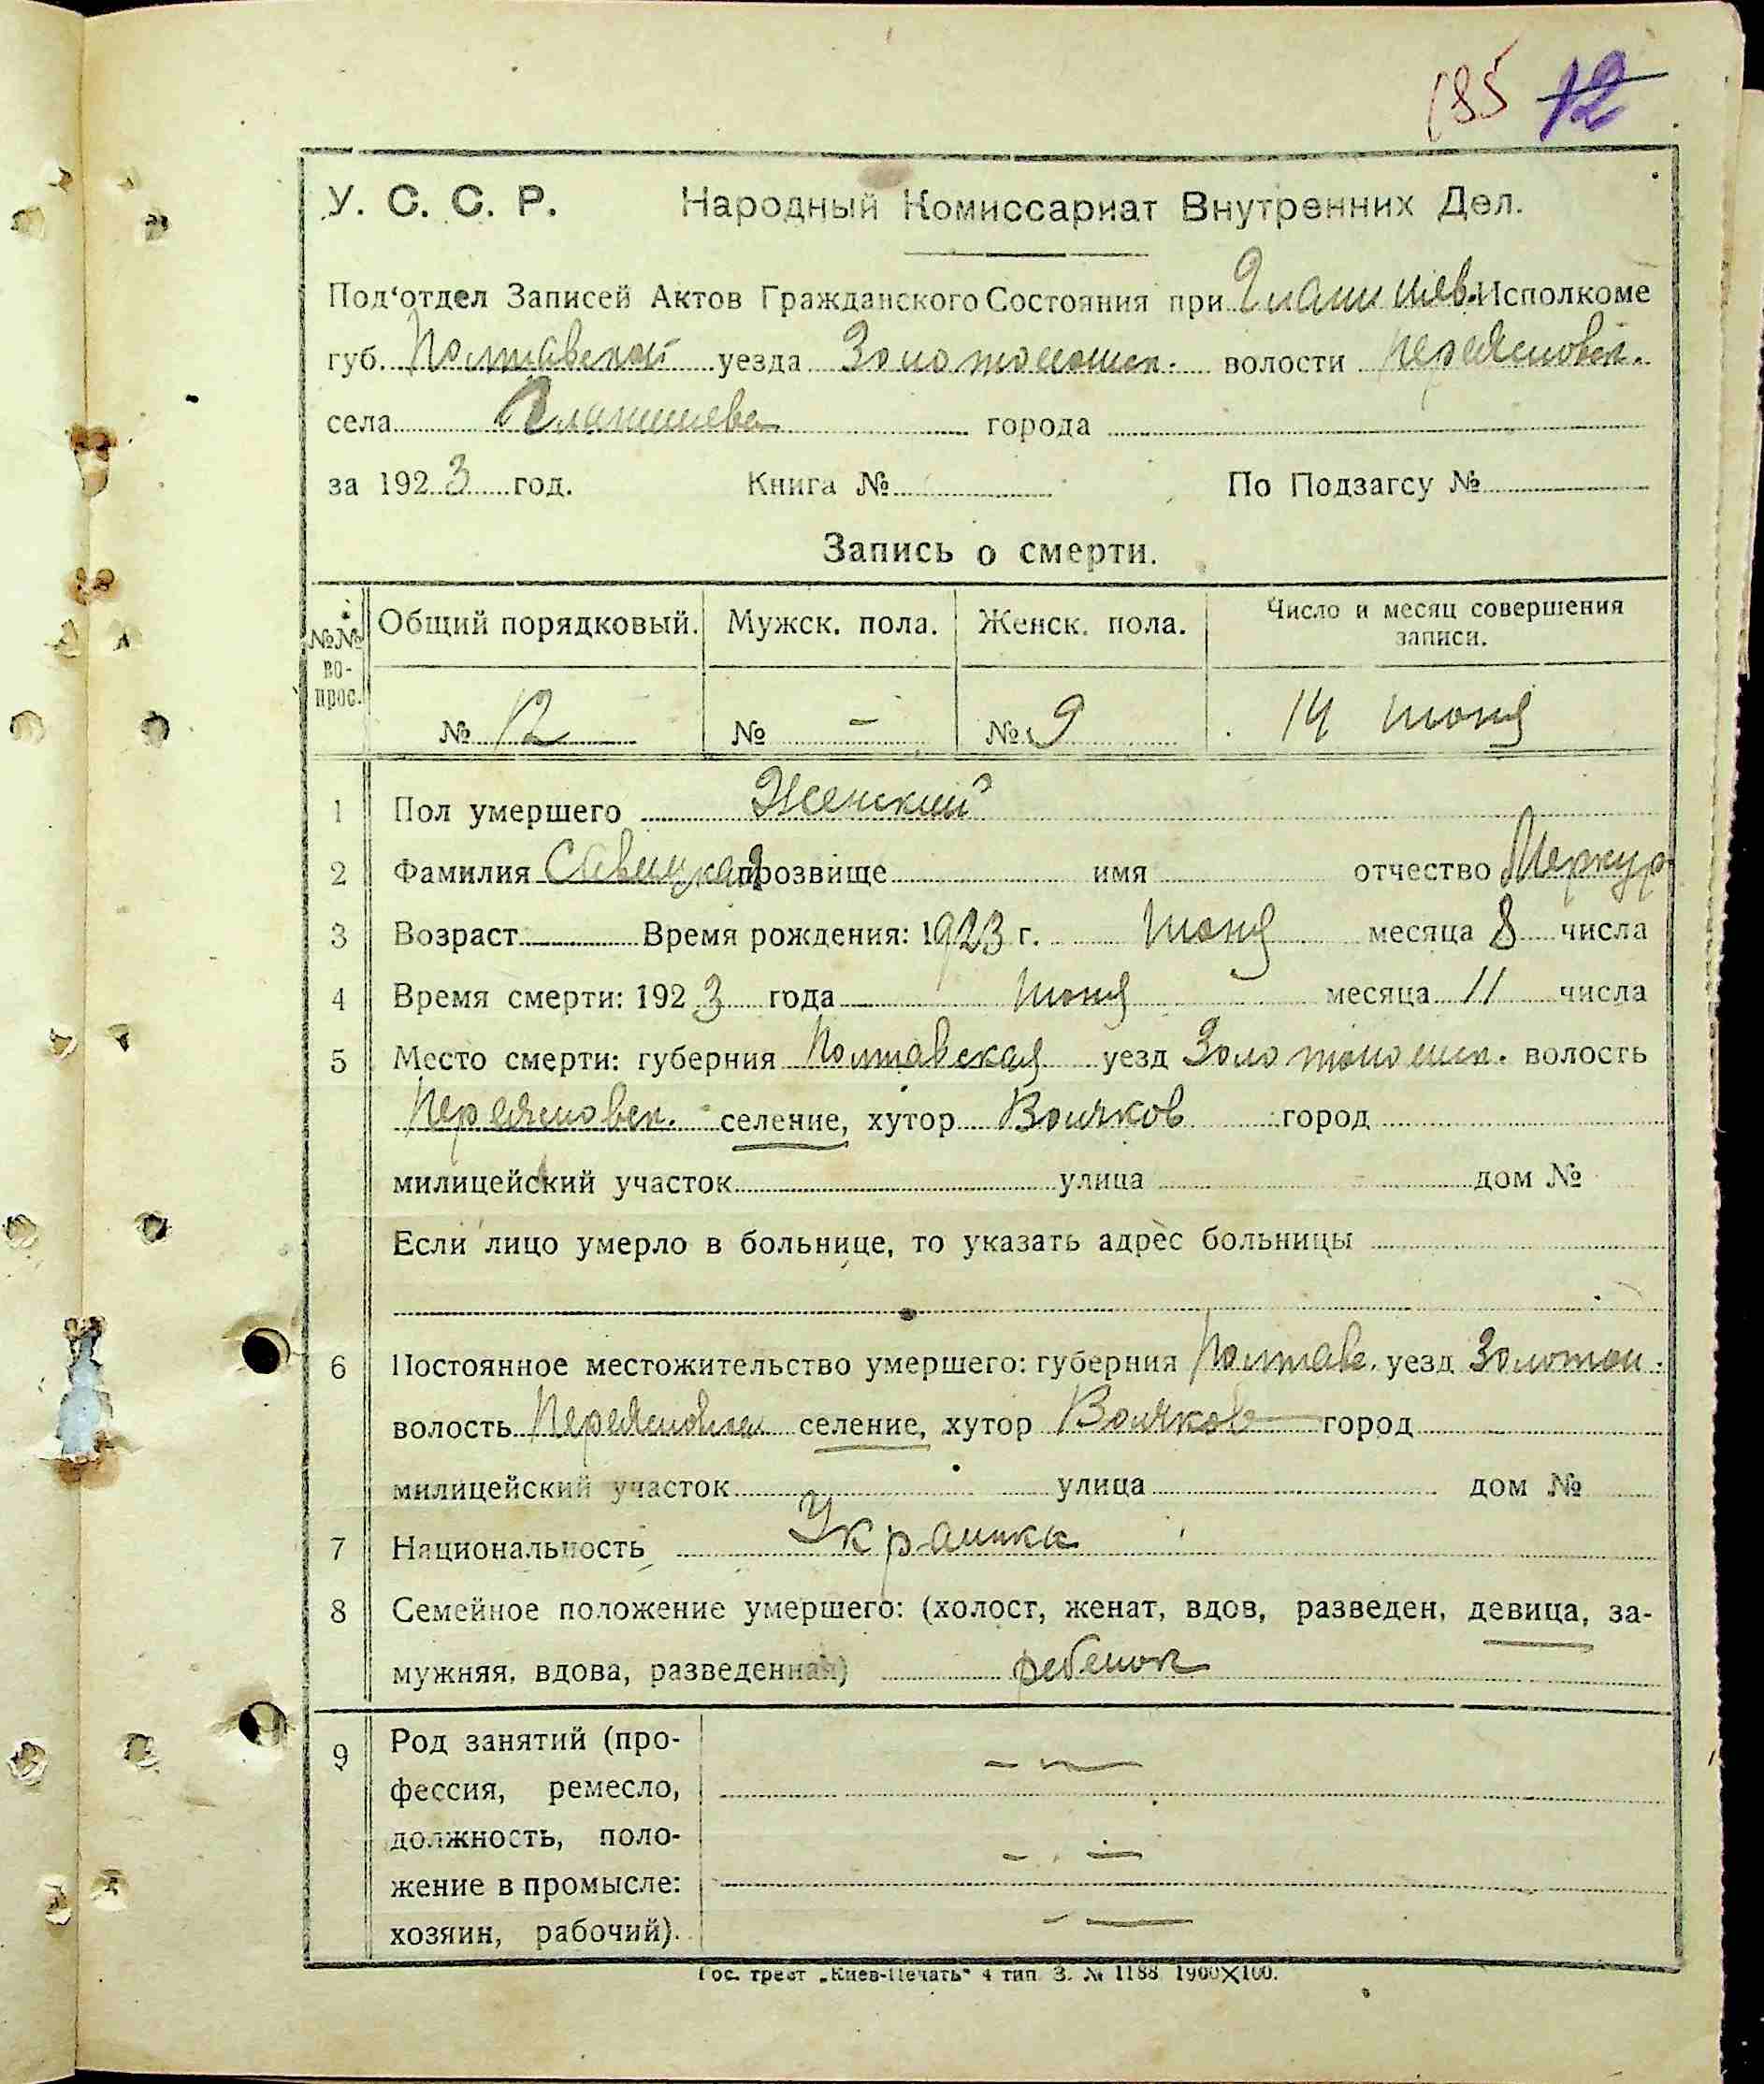 185 12
У. С. С. Р. Народный Комиссариат Внутренних Дел.
Под'отдел Записей Актов Гражданского Состояния при Исполкоме
губ. Полтавской уезда Золотоношск. волости
села города
за 1923 год. Книга № По Подзагсу №
Запись о смерти.
№№ во-прос. Общий порядковый. Мужск. пола. Женск. пола. Число и месяц совершения записи.
№ 12 № – № 9 14 июня
1 Пол умершего Женский
2 Фамилия Савицкая прозвище имя отчество Меркур
3 Возраст Время рождения: 1923 г. июня месяца 8 числа
4 Время смерти: 1923 года июня месяца 11 числа
5 Место смерти: губерния Полтавская уезд Золотоношск. волость
селение, хутор Войтков город
милицейский участок улица дом №
Если лицо умерло в больнице, то указать адрес больницы
6 Постоянное местожительство умершего: губерния Полтав. уезд Золотон.
волость селение, хутор Войтков город
милицейский участок улица дом №
7 Национальность Украинка
8 Семейное положение умершего: (холост, женат, вдов, разведен, девица, за-
мужняя, вдова, разведенная) ребенок
9 Род занятий (про-
фессия, ремесло,
должность, поло-
жение в промысле:
хозяин, рабочий).
Гос. трест „Киев-Печать" 4 тип. З. № 1188 1900×100.